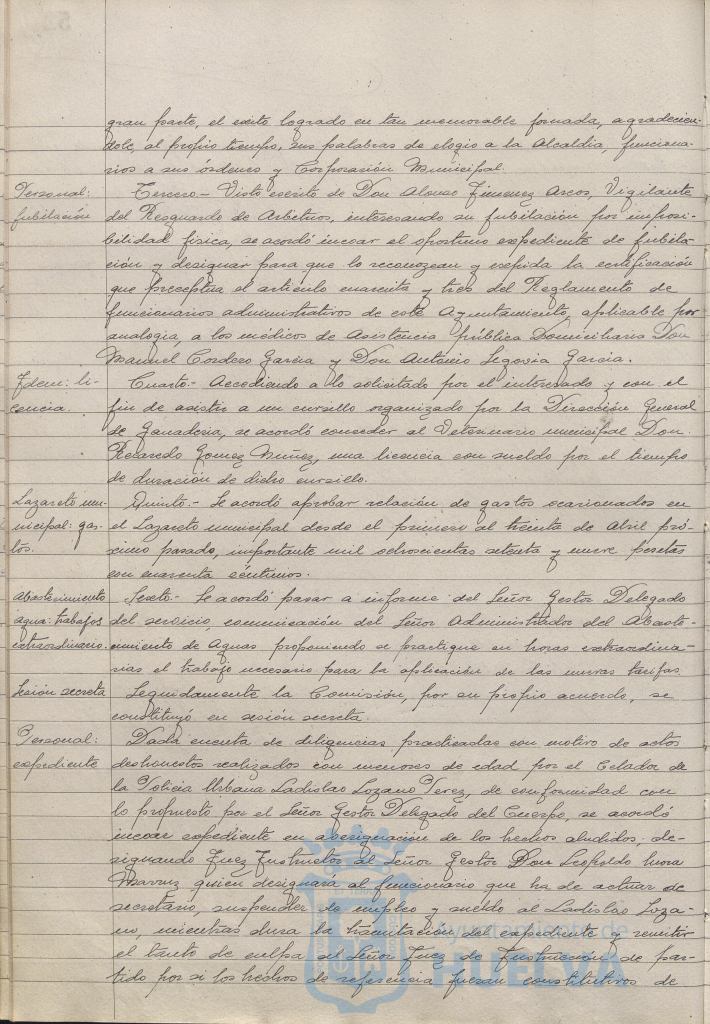 gran parte, el exito logrado en tan memorable jornada, agradecien-
dole, al propio tiempo, sus palabras de elogio a la Alcaldia, funciona-
rios a sus órdenes y Corporación Municipal.
Personal: Tercero.- Visto escrito de Don Alonso Jimenez Arcos, Vigilante
jubilación del Resguardo de Arbitrios, interesando su jubilación por imposi-
bilidad fisica, se acordó incoar el oportuno expediente de jubila-
ción y designar para que lo reconozcan y expida la certificación
que preceptua el articulo cuarenta y tres del Reglamento de
funcionarios administrativos de este Ayuntamiento, aplicable por
analogia, a los médicos de Asistencia pública Domiciliaria Don
Manuel Cordero Garcia y Don Antonio Segovia Garcia.
Idem: li- Cuarto.- Accediendo a lo solicitado por el interesado y con el
cencia. fin de asistir a un cursillo organizado por la Dirección General
de Ganaderia, se acordó conceder al Veterinario municipal Don
Recaredo Gomez Muñez, una licencia con sueldo por el tiempo
de duración de dicho cursillo.
Lazareto mu- Quinto.- Se acordó aprobar relación de gastos ocasionados en
nicipal: gas- el Lazareto municipal desde el primero al treinta de Abril pró-
tos. ximo pasado, importante mil ochocientas setenta y nueve pesetas
con cuarenta céntimos.
Abastecimiento Sexto.- Se acordó pasar a informe del Señor Gestor Delegado
agua: trabajos del servicio, comunicación del Señor Administrador del Abaste-
extraordinario. cimiento de Aguas proponiendo se practique en horas extraordina-
rias el trabajo necesario para la aplicación de las nuevas tarifas.
Sesión secreta Seguidamente la Comisión, por su propio acuerdo, se
constituyó en sesión secreta.
Personal: Dada cuenta de diligencias practicadas con motivo de actos
expediente deshonestos realizados con menores de edad por el Celador de
la Policia Urbana Ladislao Lozano Perez, de conformidad con
lo propuesto por el Señor Gestor Delegado del Cuerpo, se acordó
incoar expediente en averiguación de los hechos aludidos, de-
signando Juez Instructor al Señor Gestor Don Leopoldo
quien designará al funcionario que ha de actuar de
secretario, suspender de empleo y sueldo al Ladislao Loza-
no, mientras dura la tramitación del expediente y remitir
el tanto de culpa al Señor Juez de Instrucción de par-
tido por si los hechos de referencia fueran constitutivos de
Ayuntamiento de
HUELVA